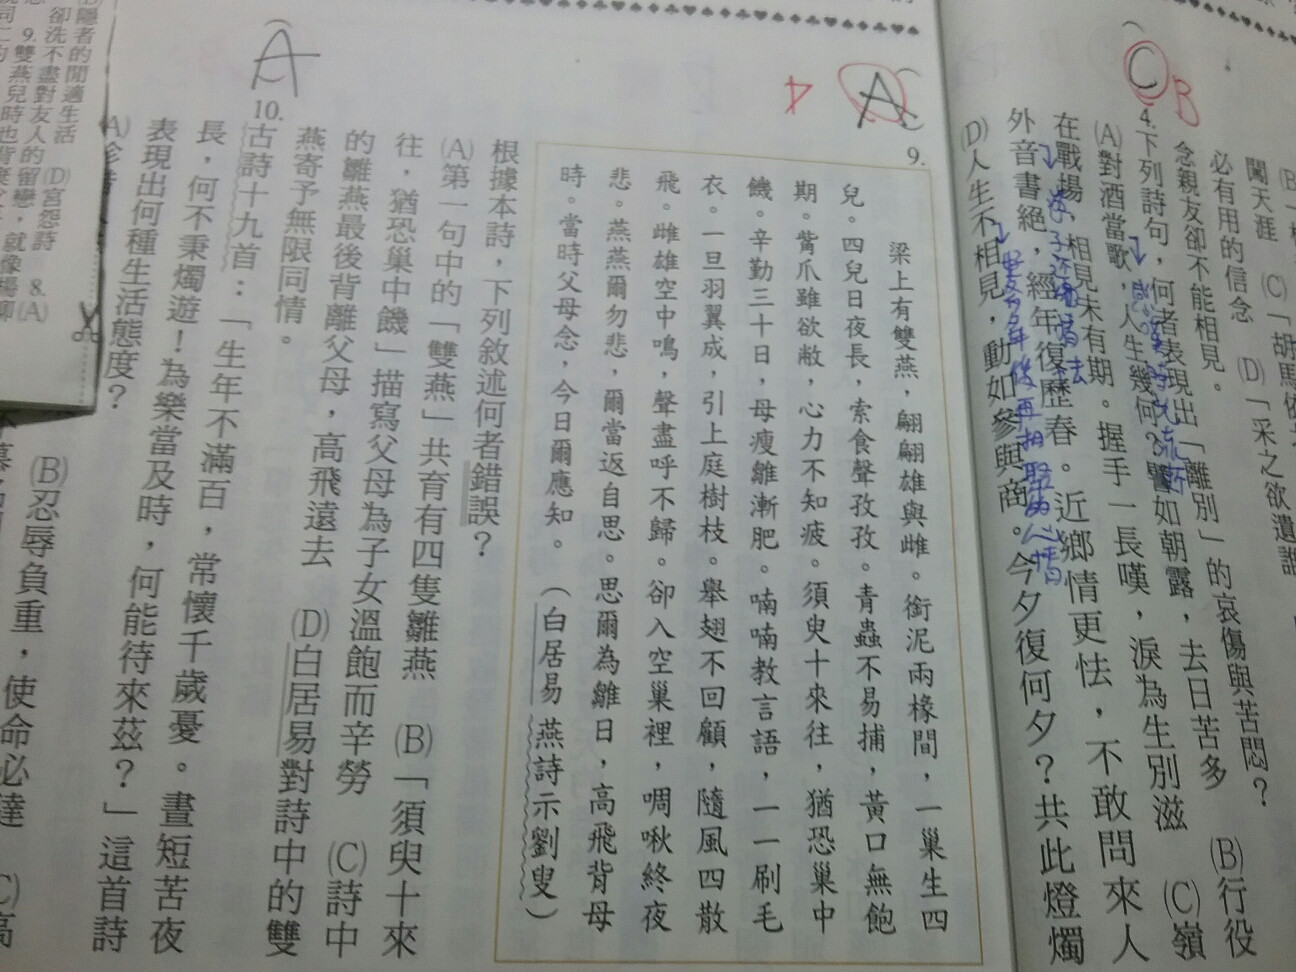 闖天涯 (C)「胡馬依
必有用的信念 (D)「采之欲遺誰
念親友卻不能相見。
C
B
4.下列詩句,何者表現出「離別」的哀傷與苦悶?
(A)對酒當歌,人生幾何?譬如朝露,去日苦多 (B)行役
在戰場,相見未有期。握手一長嘆,淚為生別滋 (C)嶺
外音書絕,經年復歷春。近鄉情更怯,不敢問來人
(D)人生不相見,動如參與商。今夕復何夕?共此燈燭
A
9.
梁上有雙燕,翩翩雄與雌。銜泥兩椽間,一巢生四
兒。四兒日夜長,索食聲孜孜。青蟲不易捕,黃口無飽
期。觜爪雖欲敝,心力不知疲。須臾十來往,猶恐巢中
饑。辛勤三十日,母瘦雛漸肥。喃喃教言語,一一刷毛
衣。一旦羽翼成,引上庭樹枝。舉翅不回顧,隨風四散
飛。雌雄空中鳴,聲盡呼不歸。卻入空巢裡,啁啾終夜
悲。燕燕爾勿悲,爾當返自思。思爾為雛日,高飛背母
時。當時父母念,今日爾應知。(白居易 燕詩示劉叟)
根據本詩,下列敘述何者錯誤?
(A)第一句中的「雙燕」共育有四隻雛燕 (B)「須臾十來
往,猶恐巢中饑」描寫父母為子女溫飽而辛勞 (C)詩中
的雛燕最後背離父母,高飛遠去 (D)白居易對詩中的雙
燕寄予無限同情。
A
10.
古詩十九首:「生年不滿百,常懷千歲憂。晝短苦夜
長,何不秉燭遊!為樂當及時,何能待來茲?」這首詩
表現出何種生活態度?
(B)忍辱負重,使命必達 (C)高
隱者的閒適生活 (D)宮怨詩 8.(A)
卻洗不盡對友人的留戀,就像楊柳
9.雙燕兒時也背棄父